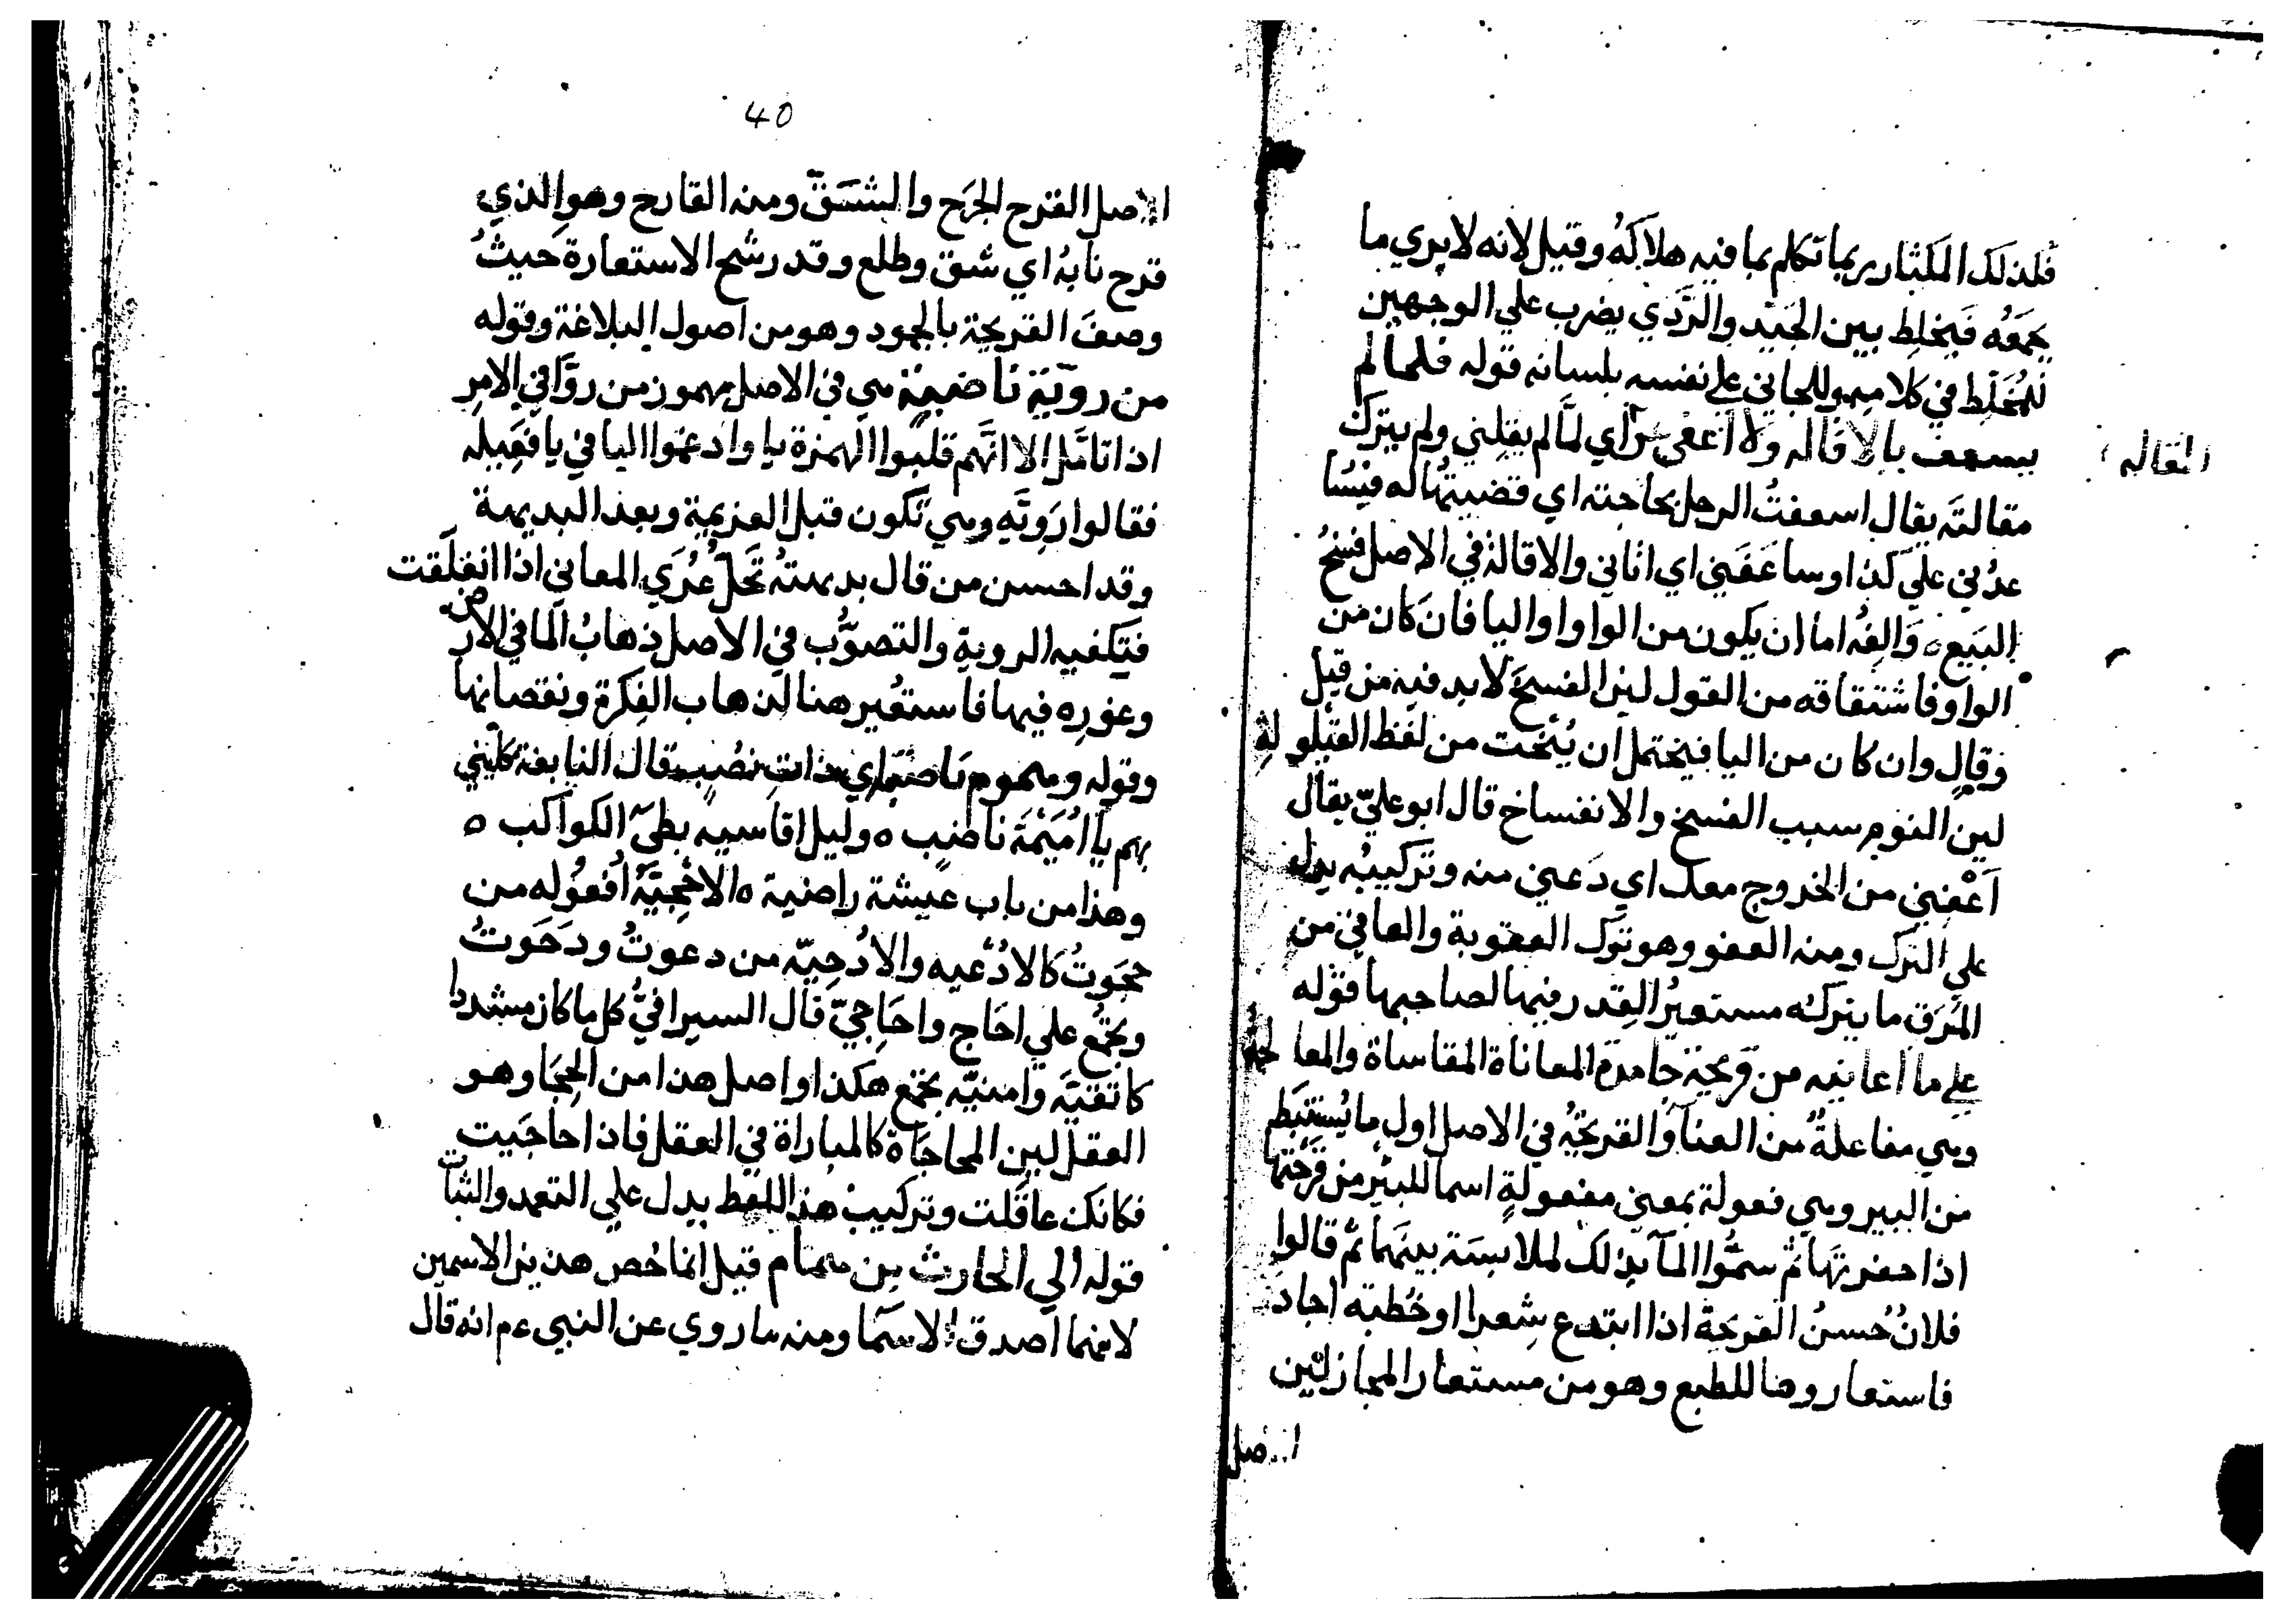 فلذلك المكثار ربما تكلم بما فيه هلاكه وقيل لانه لا يري ما
يجمعه فيخلط بين الجيد والردي يضرب علي الوجهين
للمخلط في كلامه وللجاني علي نفسه بلسانه قوله فلما لم
يسعف بالاقاله ولا اعفي من اي لما لم يقلني ولم يترك
المقاله
مقالته يقال اسعفت الرجل بحاجته اي قضيتها له
علي كذا وساعفني اي اتاني والاقالة في الاصل فسخ
البيع ه والفه اما ان يكون من الواو او اليا فان كان من
الواو فاشتقاقه من القول لين الفسخ لا بد فيه من قيل
وقال وان كان من اليا فيحتمل ان ينحت من لفظ القيلولة
لين النوم سبب الفسخ والانفساخ قال ابو علي يقال
اعفني من الخروج معك اي دعني منه وتركيبه يدل
علي الترك ومنه العفو وهو ترك العقوبة والعافي من
المرق ما يتركه مستعير القدر فيها لصاحبها قوله
علي ما اعانيه من قريحة جامدة المعاناة المقاساة والمعالجة
وهي مفاعلة من العنا والقريحة في الاصل اول ما يستنبط
من البير وهي فعولة بمعني مفعولة اسما للبئر من قرحتها
اذا حفرتها ثم سموا الما بذلك لملابسة بينهما ثم قالوا
فلان حسن القريحة اذا ابتدع شعرا او خطبه اجاد
فاستعاروها للطبع وهو من مستعار المجاز لين
الاصل
40
الاصل القرح الجرح والشق ومنه القارح وهو الذي
قرح نابه اي شق وطلع وقد رشح الاستعارة حيث
وصف القريحة بالجمود وهو من اصول البلاغة وقوله
من روية ناضبة هي في الاصل مهموز من روا في الامر
اذا تامل الا انهم قلبوا الهمزة يا وادغموا اليا في يا فعيله
فقالوا رويه وهي تكون قبل العزيمة وبعد البديهة
وقد احسن من قال بديهته تحل عري المعاني اذا انغلقت
فتكفيه الروية والتصوب في الاصل ذهاب الما في الارض
وغوره فيها فاستعير هنا لذهاب الفكرة ونقصانها
وقوله وهموم ناصبة اي ذات نصب قال النابغة كليني
بهم يا اميمة ناصب ه وليل اقاسيه بطي الكواكب ه
وهذا من باب عيشة راضية ه الاحجية افعوله من
حجوت كالادعيه والادحيه من دعوت ودحوت
ويجمع علي احاج واحاجي قال السيرافي كل ما كان مشددا
كاثفية وامنيه يجمع هكذا واصل هذا من الحجا وهو
العقل لين المحاجاة كالمباراة في العقل فاذا حاجيت
فكانك عاقلت وتركيب هذا اللفظ يدل علي التعهد والثبات
قوله الي الحارث بن همام قيل انما خص هذين الاسمين
لانهما اصدق الاسما ومنه ما روي عن النبي ءم انه قال